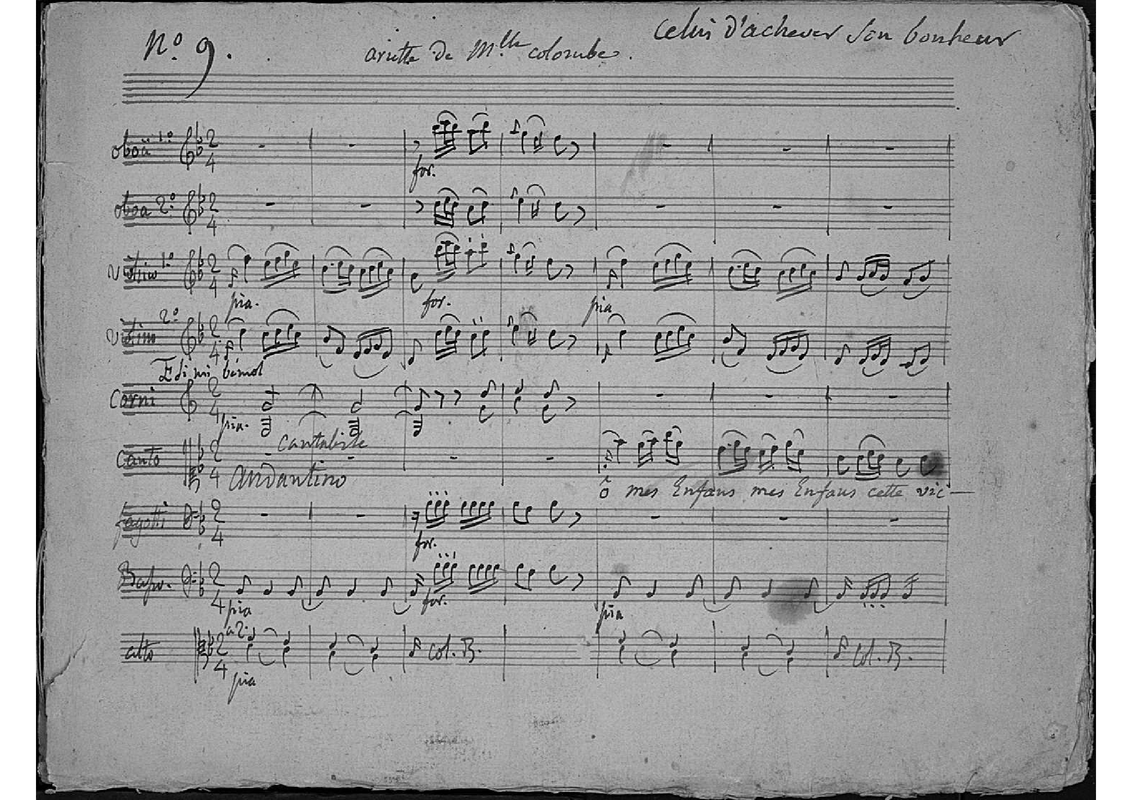 N.o 9.
ariette de Mlle colombe.
Celui d'achever son bonheur
oboa 1.o
for.
oboa 2.o
V.lino 1.o
pia. for. pia
V.lino 2.o
E di mi bémol
Corni
pia.
cantabile
Canto
andantino
ô mes Enfans mes Enfans cette vic-
fagotti
for.
Basso.
pia for. pia
alto a 2. col. B. col. B.
pia